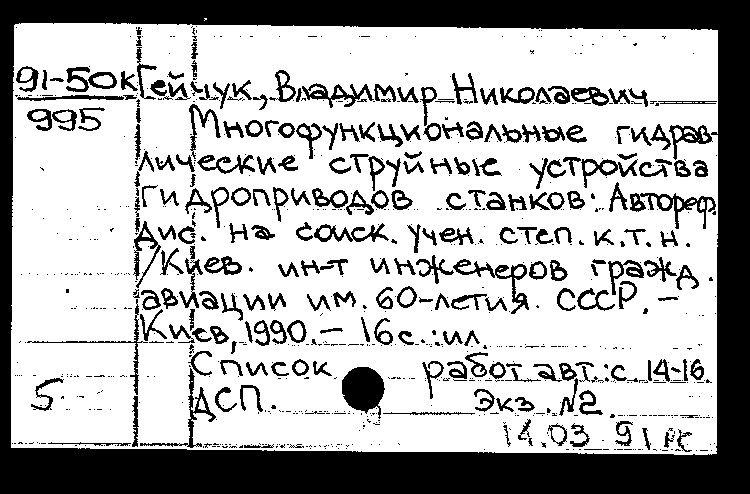 91-50К Гейчук, Владимир Николаевич.
995 Многофункциональные гидрав-
лические струйные устройства
гидроприводов станков: Автореф.
дис. на соиск. учен. степ. к.т.н.
/Киев. ин-т инженеров гражд.
авиации им. 60-летия СССР. –
Киев, 1990. – 16с.:ил.
Список работ авт.: с 14-16.
5 ДСП. Экз. №2.
14.03 91